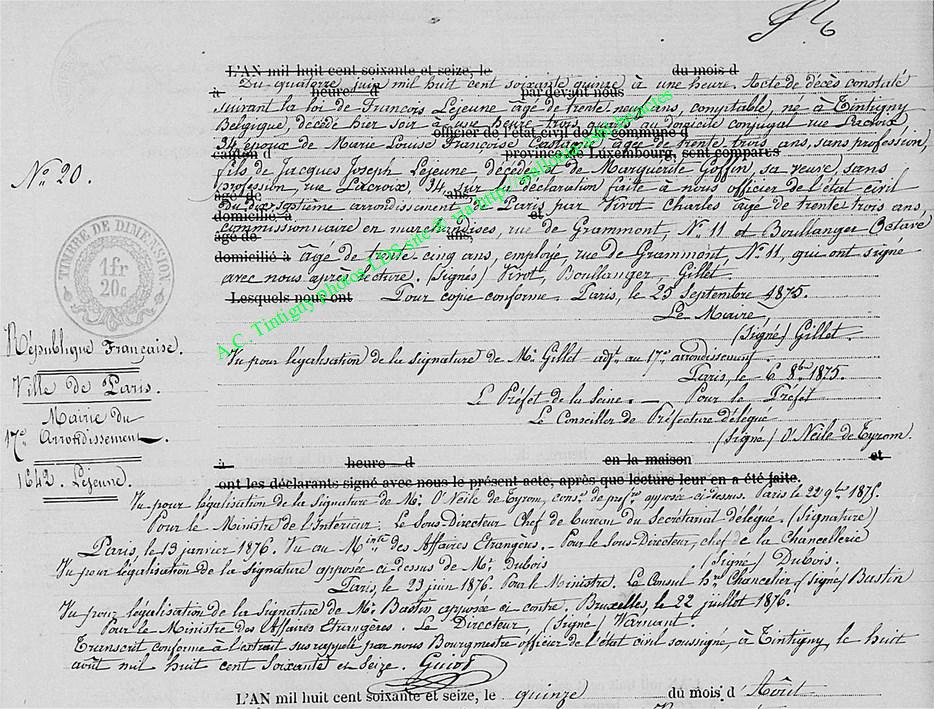 L'AN mil huit cent soixante et seize, le du mois d
Du quatorze juin mil huit cent soixante quinze à une heure. Acte de décès constaté
à heure d par devant nous
suivant la loi de François Lejeune âgé de trente neuf ans, comptable, né à Tintigny
Belgique, décédé hier soir à une heure trois quarts au domicile conjugal rue Lacroix
officier de l'état civil de la commune d
34, époux de Marie Louise Françoise âgée de trente trois ans, sans profession,
canton d province de Luxembourg, sont comparus
fils de Jacques Joseph Lejeune décédé et de Marguerite Goffin, sa veuve, sans
profession, rue Lacroix, 34. sur la déclaration faite à nous officier de l'état civil
âgé de ans,
du dix septième arrondissement de Paris par Virot Charles âgé de trente trois ans,
domicilié à et
commissionnaire en marchandises, rue de Grammont, N° 11 et Boullanger Octave
âgé de ans,
domicilié à âgé de trente cinq ans, employé, rue de Grammont, N° 11, qui ont signé
avec nous après lecture. (Signés) Virot, Boullanger, Gillet
Lesquels nous ont Pour copie conforme. Paris, le 25 Septembre 1875.
Le Maire,
(Signé) Gillet.
Vu pour légalisation de la signature de Mr. Gillet adjt. au 17e arrondissement
Paris, le 6 8bre 1875.
Le Préfet de la Seine. — Pour le Préfet
Le Conseiller de Préfecture délégué
(Signé) O'Neile de Tyrom.
à heure d en la maison et
ont les déclarants signé avec nous le présent acte, après que lecture leur en a été faite.
Vu pour légalisation de la signature de Mr. O'Neile de Tyrom, consr de préfre apposée ci dessus. Paris le 22 9bre 1875.
Pour le Ministre de l'Intérieur: Le Sous-Directeur Chef de bureau du Secrétariat délégué. (Signature)
Paris, le 13 janvier 1876. Vu au Minstre des Affaires Etrangères. - Pour le Sous-Directeur, chef de la Chancellerie
(Signé) Dubois.
Vu pour légalisation de la signature apposée ci dessus de Mr. Dubois
Paris, le 23 juin 1876. Pour le Ministre. Le Consul hre Chancelier (Signé) Bastin
Vu pour légalisation de la signature de Mr. Bastin apposée ci contre. Bruxelles, le 22 juillet 1876.
Pour le Ministre des Affaires Etrangères. Le Directeur, (Signé) Warnant.
Transcrit conforme à l'extrait sus rappelé par nous Bourgmestre officier de l'état civil soussigné, à Tintigny, le huit
août mil huit cent soixante et seize. Guiot
L'AN mil huit cent soixante et seize, le quinze du mois d'Août
N° 20.
TIMBRE DE DIMENSION
1fr
20c
République Française.
Ville de Paris.
Mairie du
17e Arrondissement.
1642. Lejeune.
A.C. Tintigny Photos LDS site via http://